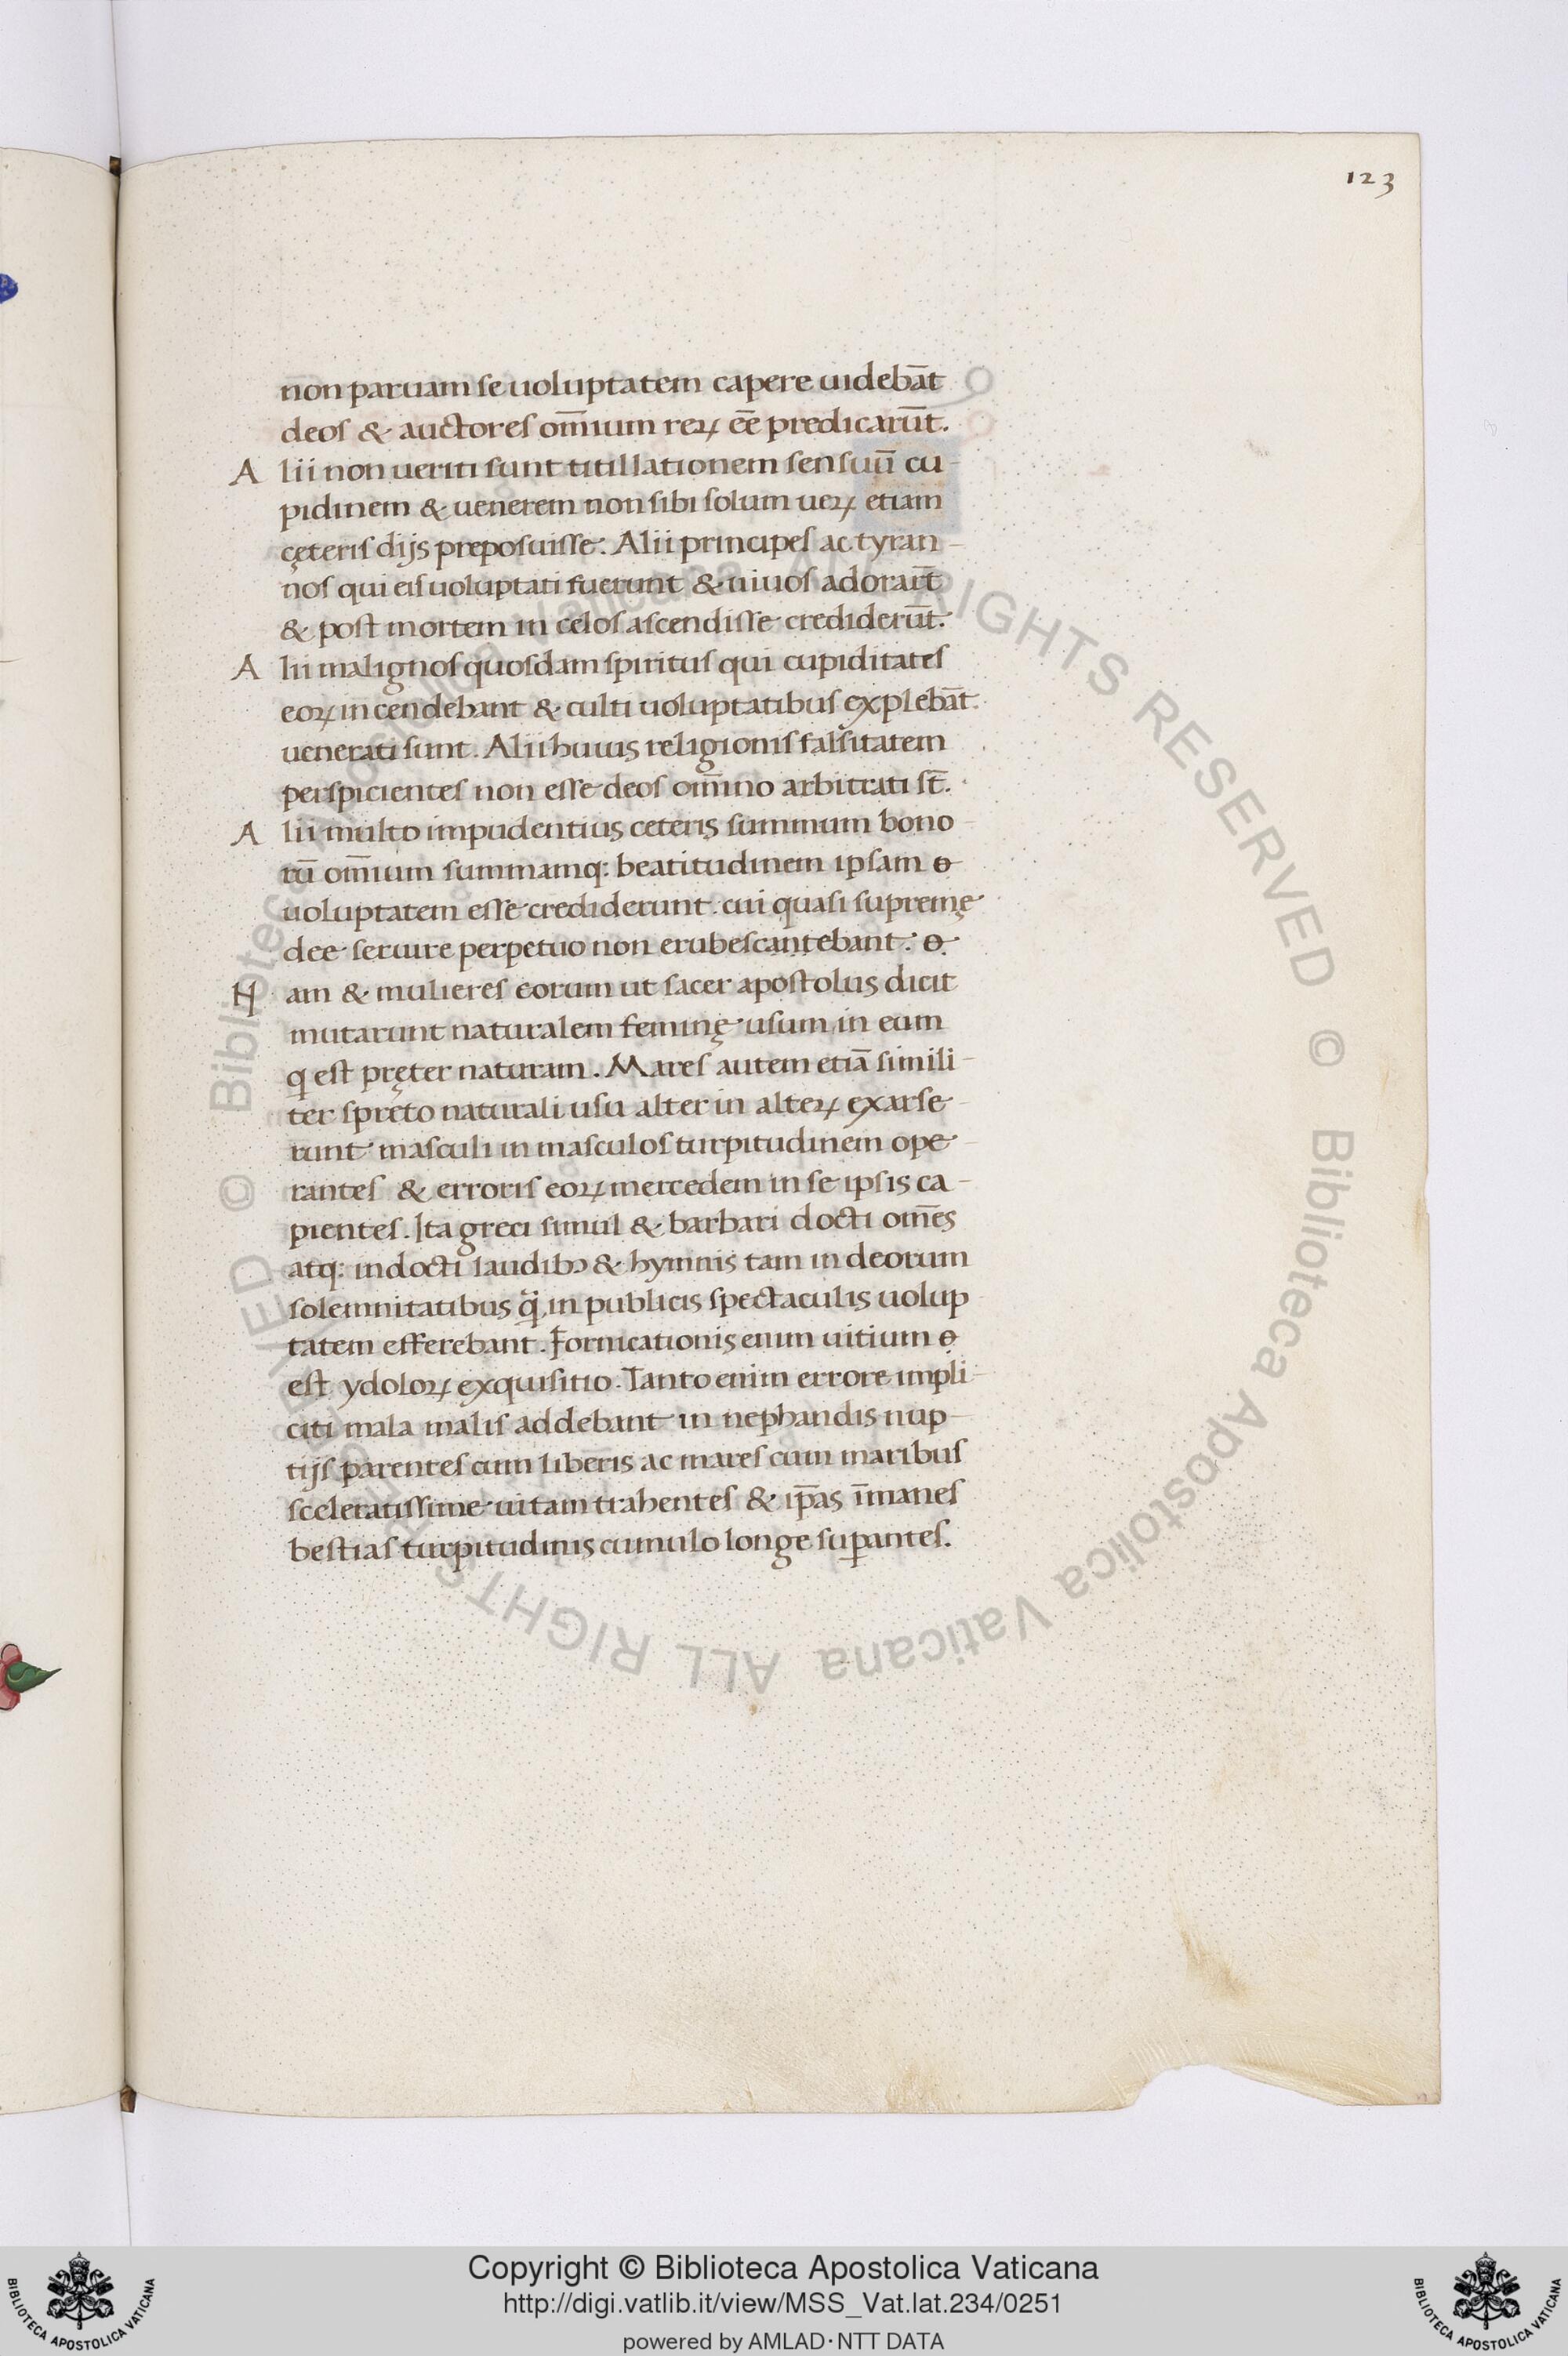 123
non paruam se uoluptatem capere uidebāt
deos & auctores om̄ium reꝝ eē predicarūt.
Alii non ueriti sunt titillationem sensuū cu-
pidinem & uenerem non sibi solum ueꝝ etiam
cęteris dijs preposuisse. Alii principes ac tyran-
nos qui eis uoluptati fuerunt & uiuos adorart̄
& post mortem in celos ascendisse crediderūt.
Alii malignos quosdam spiritus qui cupiditates
eoꝝ incendebant & culti uoluptatibus explebāt.
uenerati sunt. Alii huius religionis falsitatem
perspicientes non esse deos om̄ino arbitrati st̄.
Alii multo impudentius ceteris summum bono
rū om̄ium summamq: beatitudinem ipsam ɵ
uoluptatem esse crediderunt. cui quasi supremę
dee seruire perpetuo non erubescantebant. ɵ
Nam & mulieres eorum ut sacer apostolus dicit
mutarunt naturalem feminę usum in eum
q est pręter naturam. Mares autem etiā simili-
ter spreto naturali usu alter in alteꝝ exarse-
runt masculi in masculos turpitudinem ope-
rantes & erroris eoꝝ mercedem in se ipsis ca-
pientes. Ita greci simul & barbari docti om̄es
atq: indocti laudibꝰ & hymnis tam in deorum
solemnitatibus q̈ in publicis spectaculis uolup
tatem efferebant. Fornicationis enim uitium ɵ
est ydoloꝝ exquisitio. Tanto enim errore impli-
citi mala malis addebant in nephandis nup-
tijs parentes cum liberis ac mares cum maribus
sceleratissime uitam trahentes & ip̄as īmanes
bestias turpitudinis cumulo longe suꝑantes.
© Biblioteca Apostolica Vaticana ALL RIGHTS RESERVED © Biblioteca Apostolica Vaticana ALL RIGHTS RESERVED
Copyright © Biblioteca Apostolica Vaticana
http://digi.vatlib.it/view/MSS_Vat.lat.234/0251
powered by AMLAD·NTT DATA
BIBLIOTECA APOSTOLICA VATICANA
BIBLIOTECA APOSTOLICA VATICANA